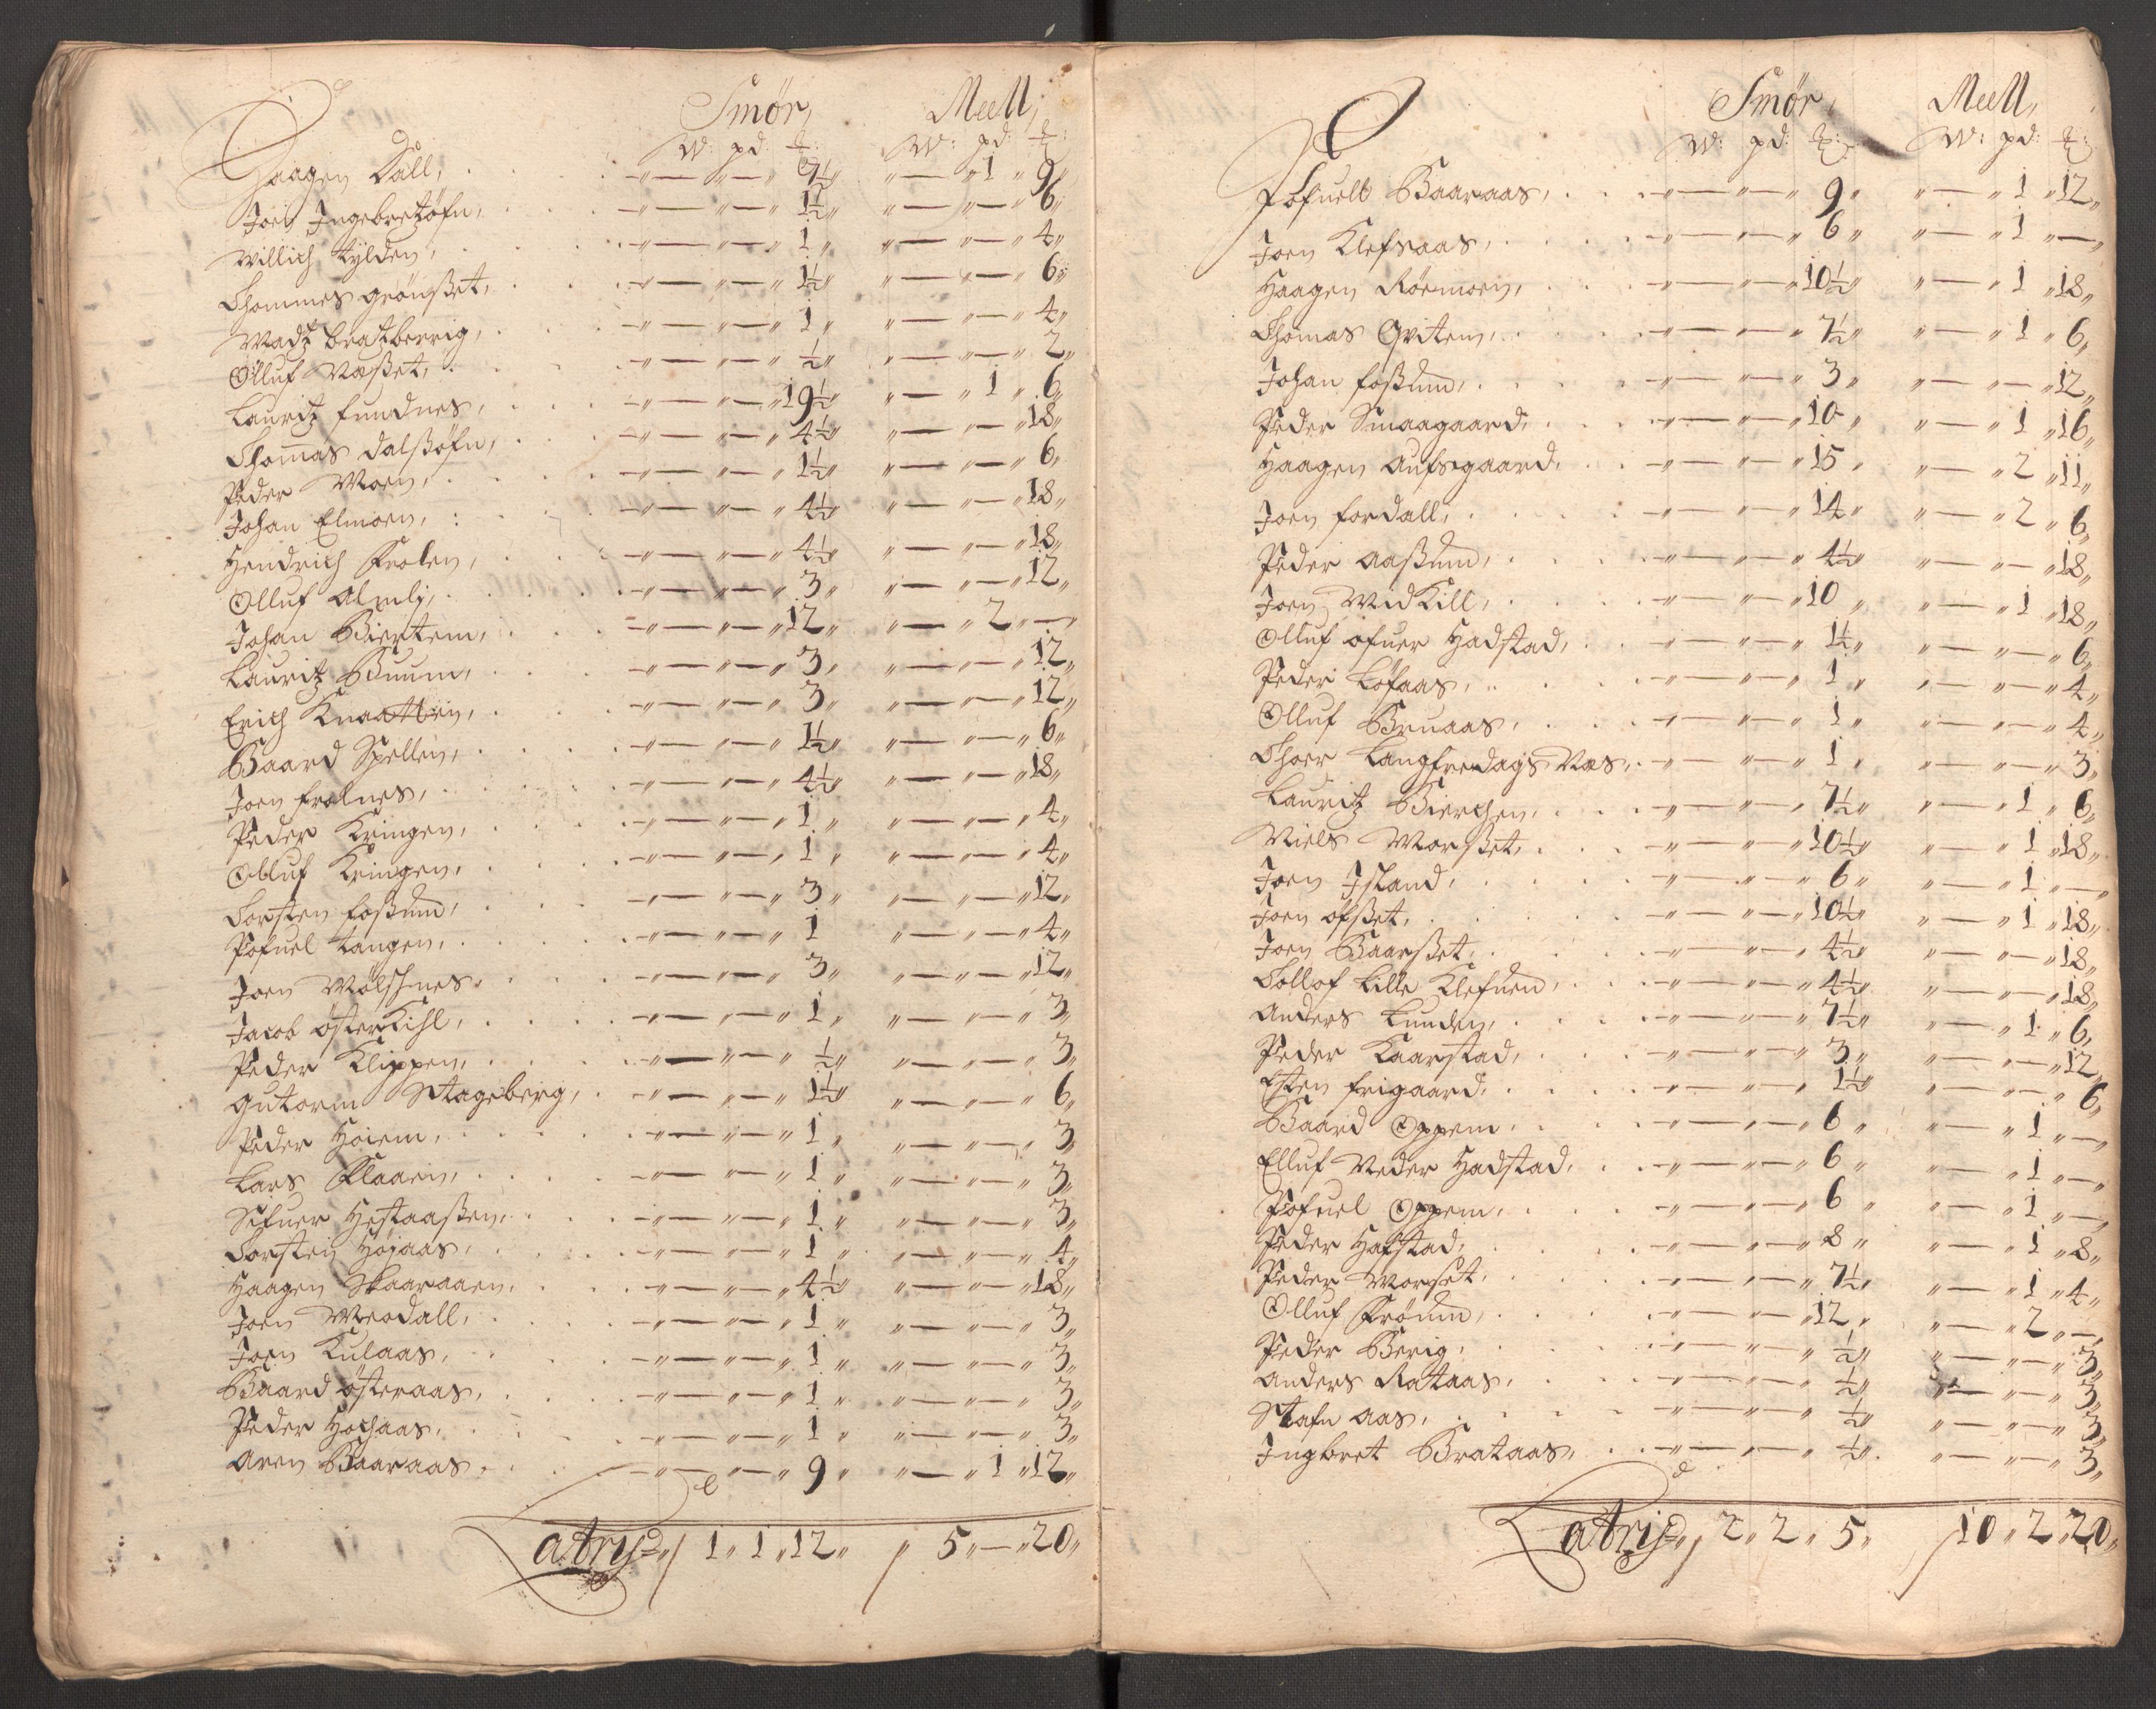 Smør, Meell,
W: pd: ℔: W: pd: ℔:
Haagen Dall, „ — „ — „ 7½ „ „ — „ 1 „ 9 „
Joen Ingebretzøfn, „ — „ — „ 1½ „ „ — „ — „ 6 „
Willich tylden, „ — „ — „ 1 „ „ — „ — „ 4 „
Thommes grönßet, „ — „ — „ 1½ „ „ — „ — „ 6 „
Madtz bratzberrig, „ — „ — „ 1 „ „ — „ — „ 4 „
Olluf Næßet, „ — „ — „ ½ „ „ — „ — „ 2 „
Lauritz fundnes, „ — „ — „ 19½ „ „ — „ 1 „ 6 „
Thommas dalßøfn, „ — „ — „ 4½ „ „ — „ — „ 18 „
Peder Moen, „ — „ — „ 1½ „ „ — „ — „ 6 „
Johan Elmoen, „ — „ — „ 4½ „ „ — „ — „ 18 „
Hendrich Frolen, „ — „ — „ 4½ „ „ — „ — „ 18 „
Olluf Almli, „ — „ — „ 3 „ „ — „ — „ 12 „
Johan Biertem, „ — „ — „ 12 „ „ — „ 2 „ — „
Lauritz Buum, „ — „ — „ 3 „ „ — „ — „ 12 „
Erich Knaatten, „ — „ — „ 3 „ „ — „ — „ 12 „
Baard Spellen, „ — „ — „ 1½ „ „ — „ — „ 6 „
Joen frolnes, „ — „ — „ 4½ „ „ — „ — „ 18 „
Peder Kringen, „ — „ — „ 1 „ „ — „ — „ 4 „
Olluf Kringen, „ — „ — „ 1 „ „ — „ — „ 4 „
Torsten foßum, „ — „ — „ 3 „ „ — „ — „ 12 „
Pofuel tangen, „ — „ — „ 1 „ — „ — „ 4 „
Joen Mölschnes, „ — „ — „ 3 „ „ — „ — „ 12 „
Jacob österKihl, „ — „ — „ 1 „ „ — „ — „ 3 „
Peder Klippen, „ — „ — „ ½ „ „ — „ — „ 3 „
Gutorm Stageberg, „ — „ — „ 1½ „ „ — „ — „ 6 „
Peder Hoiem, „ — „ — „ 1 „ „ — „ — „ 3 „
Lars Klaaren, „ — „ — „ 1 „ „ — „ — „ 3 „
Sifuer Hestaaßen, „ — „ — „ 1 „ „ — „ — „ 3 „
Torsten Hojaas, „ — „ — „ 1 „ „ — „ — „ 4 „
Haagen Skaaraaen, „ — „ — „ 4½ „ „ — „ — „ 18 „
Joen Meodall, „ — „ — „ 1 „ „ — „ — „ 3 „
Joen Kulaas, „ — „ — „ 1 „ „ — „ — „ 3 „
Baard österaas, „ — „ — „ 1 „ „ — „ — „ 3 „
Peder Hochaas, „ — „ — „ 1 „ „ — „ — „ 3 „
Aren Baaraas, „ — „ — „ 9 „ „ — „ 1 „ 12 „
Latris 1 „ 1 „ 12 „ 5 „ — „ 20 „
Smør, Meell,
W: pd: ℔: W: pd: ℔:
Pofuell Baaraas, „ — „ — „ 9 „ „ — „ 1 „ 12 „
Joen Klefsaas, „ — „ — „ 6 „ „ — „ 1 „ — „
Haagen Rörmoen, „ — „ — „ 10½ „ „ — „ 1 „ 18 „
Thomas Qviten, „ — „ — „ 7½ „ „ — „ 1 „ 6 „
Johan foßum, „ — „ — „ 3 „ „ — „ — „ 12 „
Peder Smaagaard, „ — „ — „ 10 „ „ — „ 1 „ 16 „
Haagen Aufsegaard, „ — „ — „ 15 „ „ — „ 2 „ 11 „
Joen fordall, „ — „ — „ 14 „ „ — „ 2 „ 6 „
Peder Aaßum, „ — „ — „ 4½ „ „ — „ — „ 18 „
Joen MidKill, „ — „ — „ 10 „ „ — „ 1 „ 18 „
Olluf ofuer Hadstad, „ — „ — „ 1½ „ „ — „ — „ 6 „
Peder Löfaas, „ — „ — „ 1 „ „ — „ — „ 4 „
Olluf Bruaas, „ — „ — „ 1 „ „ — „ — „ 4 „
Thoer Langfredags Næs, „ — „ — „ 1 „ „ — „ — „ 3 „
Lauritz Bierchen, „ — „ — „ 7½ „ „ — „ 1 „ 6 „
Niels Morßet, „ — „ — „ 10½ „ „ — „ 1 „ 18 „
Joen Jstand, „ — „ — „ 6 „ „ — „ 1 „ — „
Joen öfßet, „ — „ — „ 10½ „ „ — „ 1 „ 18 „
Joen Baarßet, „ — „ — „ 4½ „ „ — „ — „ 18 „
Tollof Lille Klefuen, „ — „ — „ 4½ „ „ — „ — „ 18 „
Anders Lunden, „ — „ — „ 7½ „ „ — „ 1 „ 6 „
Peder Kaarstad, „ — „ — „ 3 „ „ — „ — „ 12 „
Esten frigaard, „ — „ — „ 1½ „ „ — „ — „ 6 „
Baard Oppem, „ — „ — „ 6 „ „ — „ 1 „ — „
Elluf Neder Hadstad, „ — „ — „ 6 „ „ — „ 1 „ — „
Pofuel Oppem, „ — „ — „ 6 „ „ — „ 1 „ — „
Peder Hafstad, „ — „ — „ 8 „ „ — „ 1 „ 8 „
Peder Morset, „ — „ — „ 7½ „ „ — „ 1 „ 4 „
Olluf Fröum, „ — „ — „ 12 „ „ — „ 2 „ — „
Peder Berig, „ — „ — „ ½ „ „ — „ — „ 3 „
Anders Rataas, „ — „ — „ ½ „ „ — „ — „ 3 „
Stafn aas, „ — „ — „ ½ „ „ — „ — „ 3 „
Ingbret Brataas, „ — „ — „ ½ „ „ — „ — „ 3 „
Latris 2 „ 2 „ 5 „ 10 „ 2 „ 20 „